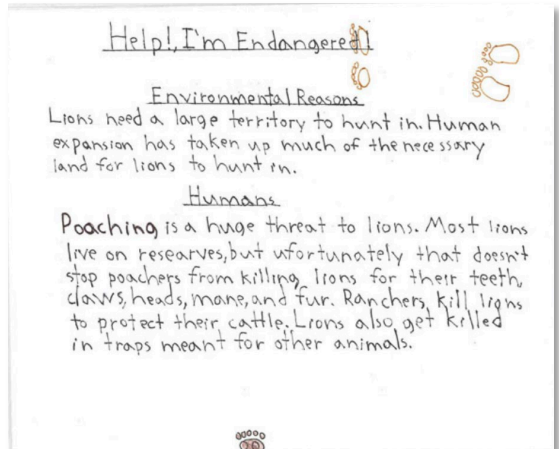 Help!, I'm Endangered!
Environmental Reasons
Lions need a large territory to hunt in. Human
expansion has taken up much of the necessary
land for lions to hunt in.
Humans
Poaching is a huge threat to lions. Most lions
live on researves, but ufortunately that doesn't
stop poachers from killing lions for their teeth,
claws, heads, mane, and fur. Ranchers kill lions
to protect their cattle. Lions also get killed
in traps meant for other animals.